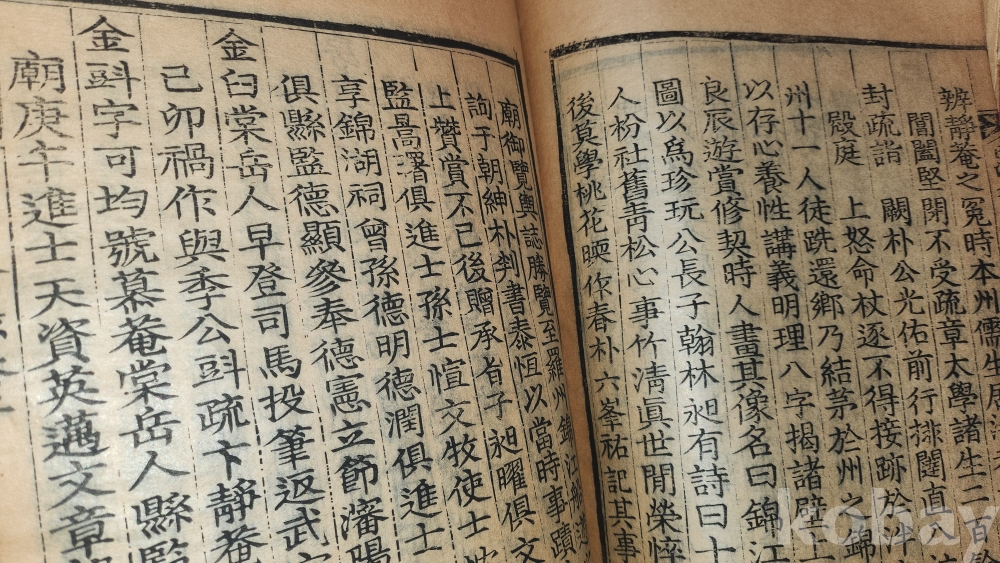 辨靜菴之冤時本州儒生
閶闔堅閉不受疏章太學諸生二百
封疏詣闕朴公光佑前行排闥直入
殿庭上怒命杖逐不得接跡於
州十一人徒跣還鄉乃結茅於州之錦
以存心養性講義明理八字揭諸壁上
良辰遊賞修契時人畫其像名曰錦江
圖以爲珍玩公長子翰林昶有詩曰十
人枌社舊靑松心事竹淸眞世閒榮悴
後莫學桃花暎作春朴六峯祐記其事
廟御覽輿誌勝覽至羅州錦江
詢于朝紳朴判書泰恒以當時事蹟
上贊賞不已後贈承旨子昶曜俱文
監暠曙俱進士孫士愃文牧使士
享錦湖祠曾孫德明德潤俱進士
俱縣監德顯參奉德憲立節瀋陽
金臼棠岳人早登司馬投筆返武
己卯禍作與季公㪷疏卞靜菴
金㪷字可均號慕菴棠岳人縣監
廟庚午進士天資英邁文章
kobay